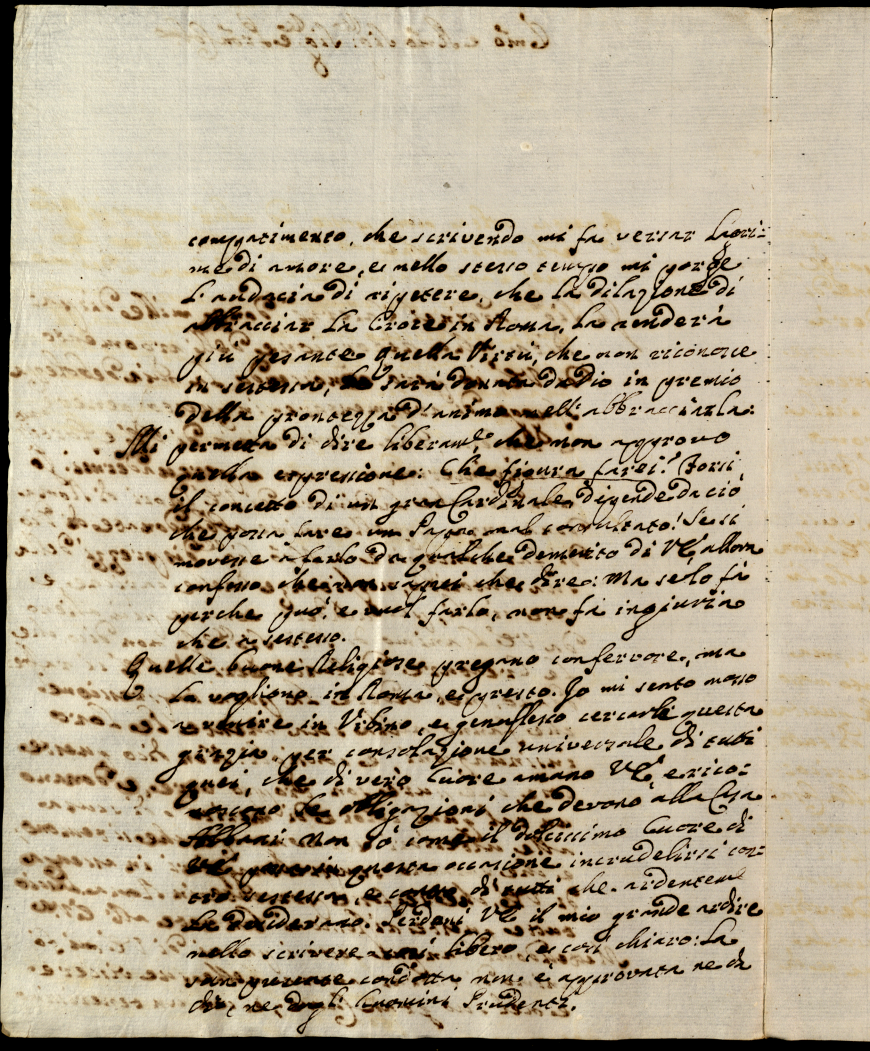 compatimento, che scrivendo mi fa versar lagri=
me di amore, e nello stesso tempo mi porge
l'audacia di ripetere, che la dilazione di
abbracciar la Croce in Roma, la renderà
più pesante. Quella Virtù, che non riconosce
in se stessa, le sarà donata da Dio in premio
della prontezza d'animo nell'abbracciarla.
Mi permetta di dire liberamte, che non approvo
quella espressione: Che figura farei? Forsi
il concetto di un gran Cardinale dipende da ciò
che possa fare un Papa mal consultato? Se si
movesse a farlo da qualche demerito di VE, allora
confesso che non saprei che dire: Ma se lo fà
perche può, e vuol farlo, non fà ingiuria
che a se stesso.
Quelle buone Religiose pregano con fervore, ma
la vogliono in Roma, e presto. Io mi sento mosso
a venire in Urbino, e genuflesso cercarle questa
grazia per consolazione universale di tutti
quei, che di vero Cuore amano VE e rico=
noscono le obligazioni che devono alla Casa
Albani. Non sò come il dolcissimo Cuore di
VE possa in questa occasione incrudelirsi con=
tro se stessa, e contro di tutti che ardentemte
la desiderano. Perdoni VE il mio grande ardire
nello scrivere assai libero, e così chiaro: La
sua presente condotta non è approvata ne da
Dio, ne dagli Huomini Prudenti.